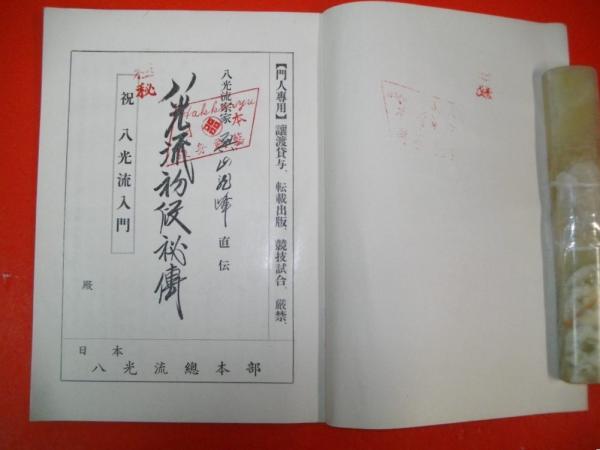 【門人専用】讓渡貸与、転載出版、競技試合、厳禁、
八光流宗家 奥山龍峰 直伝
八光流初段秘傳
祝 八光流入門
殿
日本
八光流總本部
秘
Hakkoryu
本